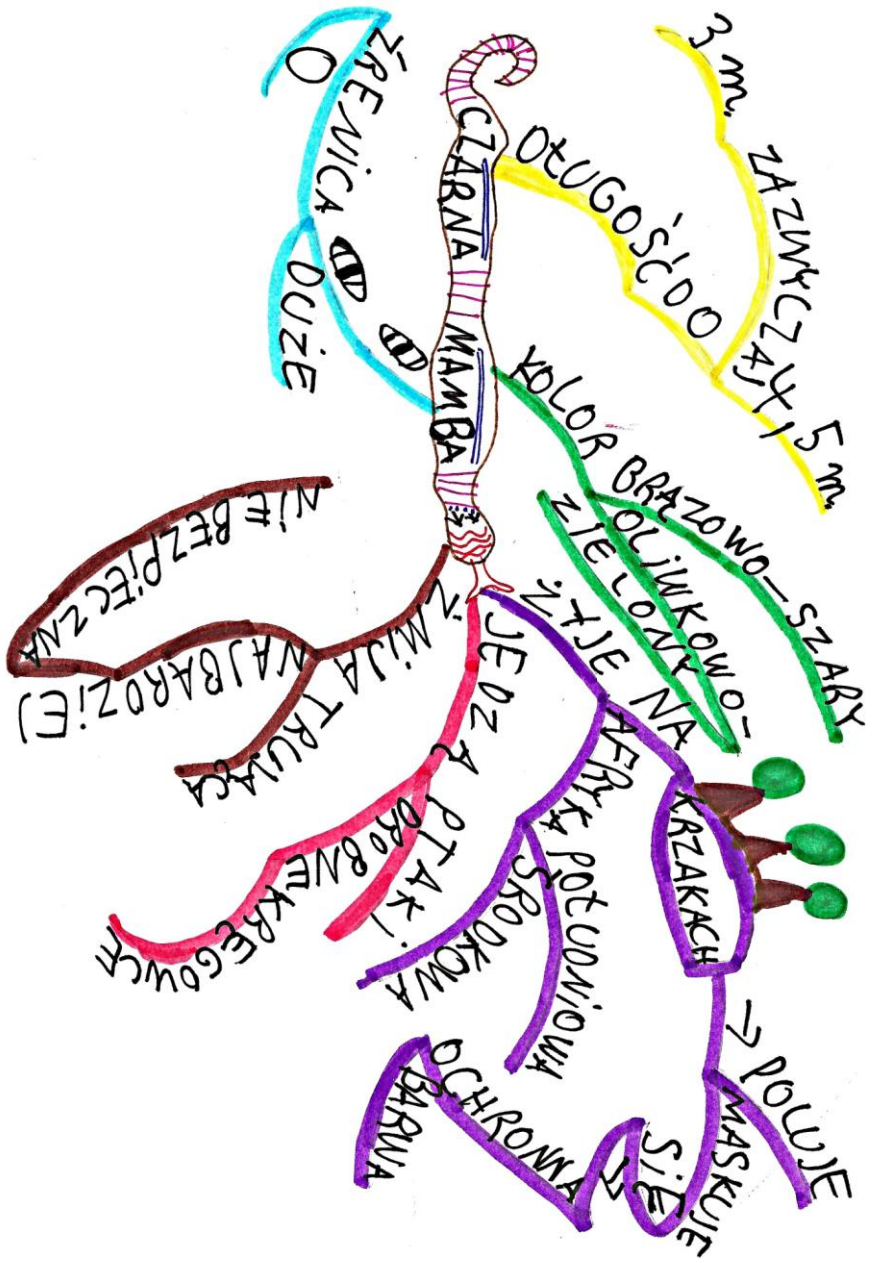 CZARNA MAMBA
DŁUGOŚĆ DO
4,5 m.
ZAZWYCZAJ
3 m.
KOLOR
BRĄZOWO-SZARY
OLIWKOWO-
ZIELONY
ŻYJE NA
KRZAKACH
→ POLUJE
MASKUJE
SIĘ
OCHRONNA
BARWA
AFRYKA
POŁUDNIOWA
ŚRODKOWA
JEDZĄ
PTAKI
DROBNE KRĘGOWCE
ŻMIJA
TRUJĄCA
NAJBARDZIEJ
NIEBEZPIECZNA
ŹRENICA
DUŻE
O